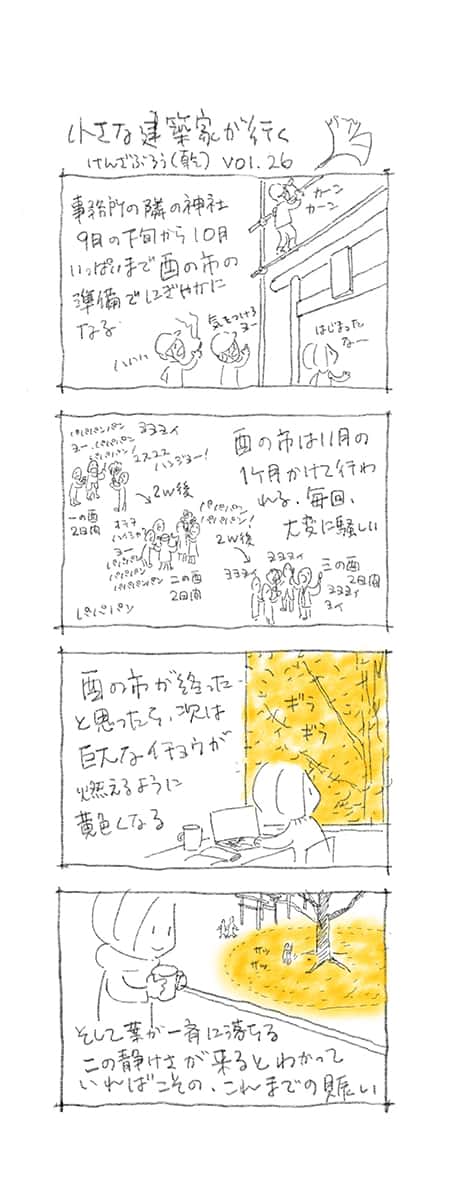 小さな建築家が行く
けんざぶろう(乾) VOl.26
事務所の隣の神社
9月の下旬から10月
いっぱいまで酉の市の
準備でにぎやかに
なる
カーン
カーン
気をつけろ
ヨー
はじまった
なー
酉の市は11月の
1ヶ月かけて行わ
れる、毎回、
大変に騒しい
パパパパンパン
ヨヨヨイ
ヨー、パパパパン
パパパパン!
ハンジョー!
一の酉
2日間
2W後
パパパパン
パパパパン!
ヨー
パパパパン
パパパパン
パパパパンパン
二の酉
2日間
2W後
ヨヨヨイ
ヨヨヨイ
三の酉
2日間
ヨヨヨイ
ヨイ
パパパパン
酉の市が終った
と思ったら、次は
巨大なイチョウが
燃えるように
黄色くなる
ギラ
ギラ
ザッ
ザッ
そして葉が一斉に落ちる
この静けさが来るとわかって
いればこその、これまでの賑い